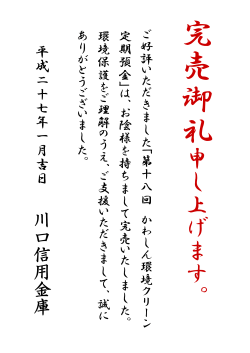 完売御礼申し上げます。
ご好評いただきました「第十八回 かわしん環境クリーン
定期預金」は、お陰様を持ちまして完売いたしました。
環境保護をご理解のうえ、ご支援いただきまして、誠に
ありがとうございました。
平成二十七年一月吉日
川口信用金庫